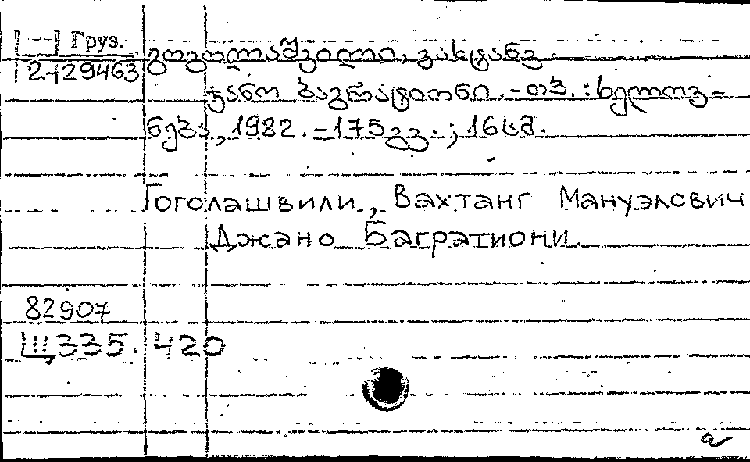 Груз.
2-29463
გოგოლაშვილი, ვახტანგ.
ჯანო ბაგრატიონი. - თბ. : ხელოვ-
ნება, 1982. - 175 გვ. ; 16 სმ.
Гоголашвили, Вахтанг Мануэлович
Джано Багратиони.
82907
Щ335.420